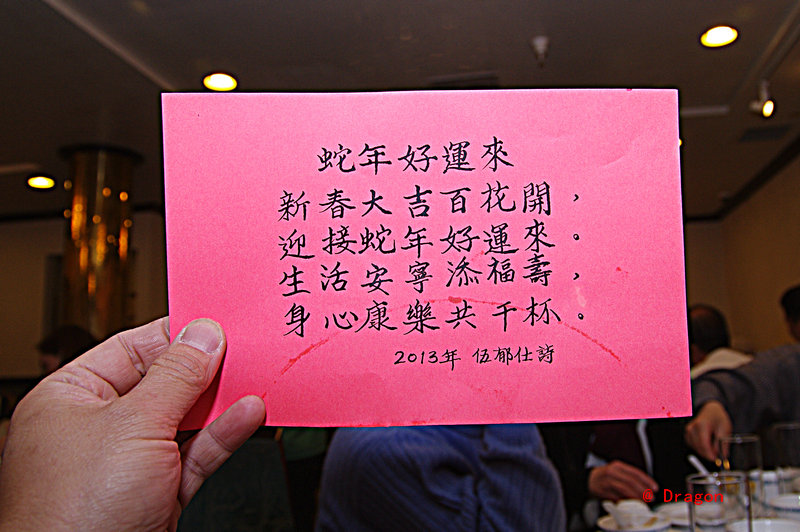 蛇年好運來
新春大吉百花開，
迎接蛇年好運來。
生活安寧添福壽，
身心康樂共干杯。
2013年 伍郁仕詩
@ Dragon